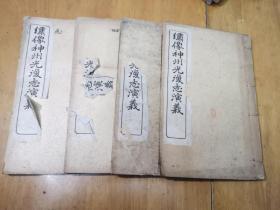 繡像神州光復志演義
光
九復志演義
繡像神州光復志演義